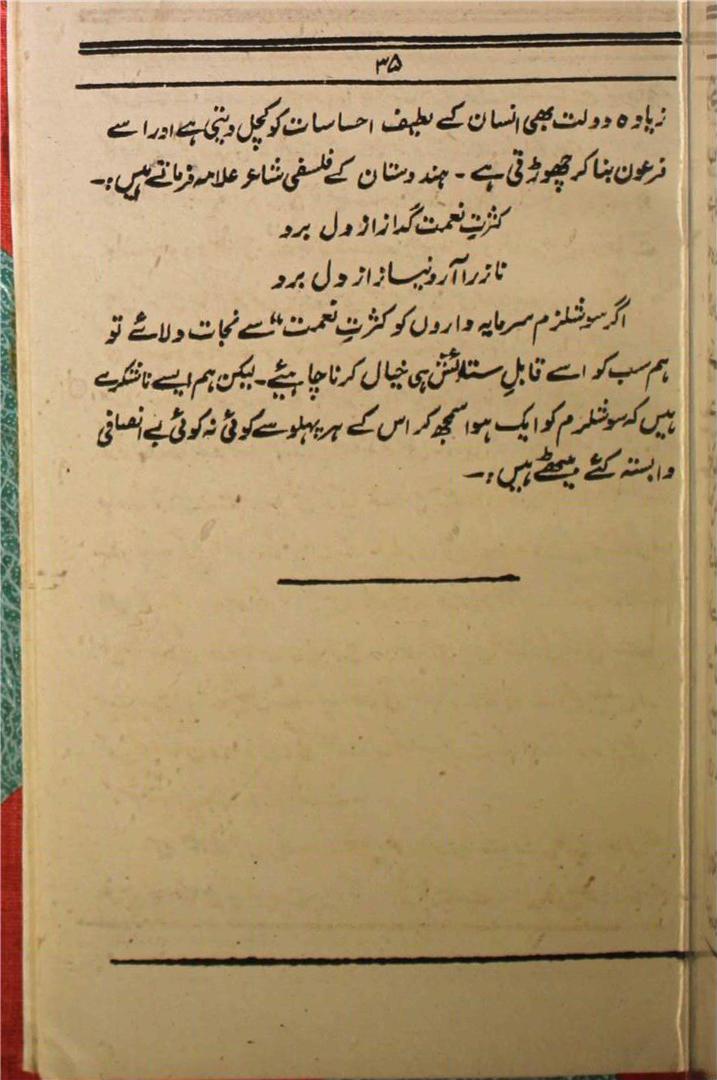 ۳۵
زیادہ دولت بھی انسان کے لطیف احساسات کو کچل دیتی ہے اور اسے
فرعون بنا کر چھوڑتی ہے ۔ ہندوستان کے فلسفی شاعر علامہ فرماتے ہیں :۔
کثرتِ نعمت گداز از دل برد
ناز را آرد نیاز از دل برد
اگر سوشلزم سرمایہ داروں کو کثرتِ نعمت “ سے نجات دلائے تو
ہم سب کو اسے قابلِ ستائش ہی خیال کرنا چاہیئے ۔ لیکن ہم ایسے ناشکرے
ہیں کہ سوشلزم کو ایک ہوا سمجھ کر اس کے ہر پہلو سے کوئی نہ کوئی بے انصافی
وابستہ کئے بیٹھے ہیں :۔